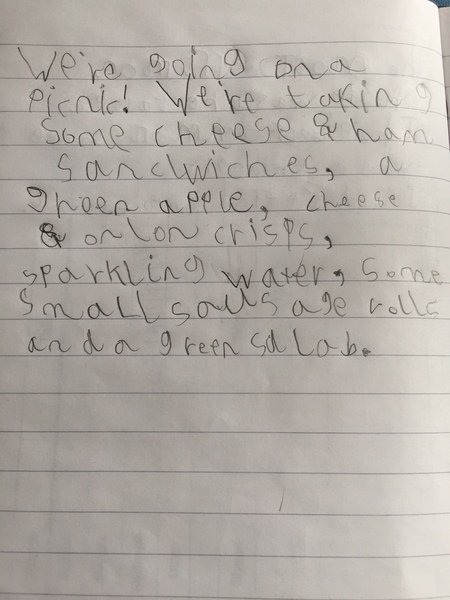 We're going on a
picnic! We're taking
some cheese & ham
sandwiches, a
green apple, cheese
& onlon crisps,
sparkling water, some
small sausage rolls
and a green salab.